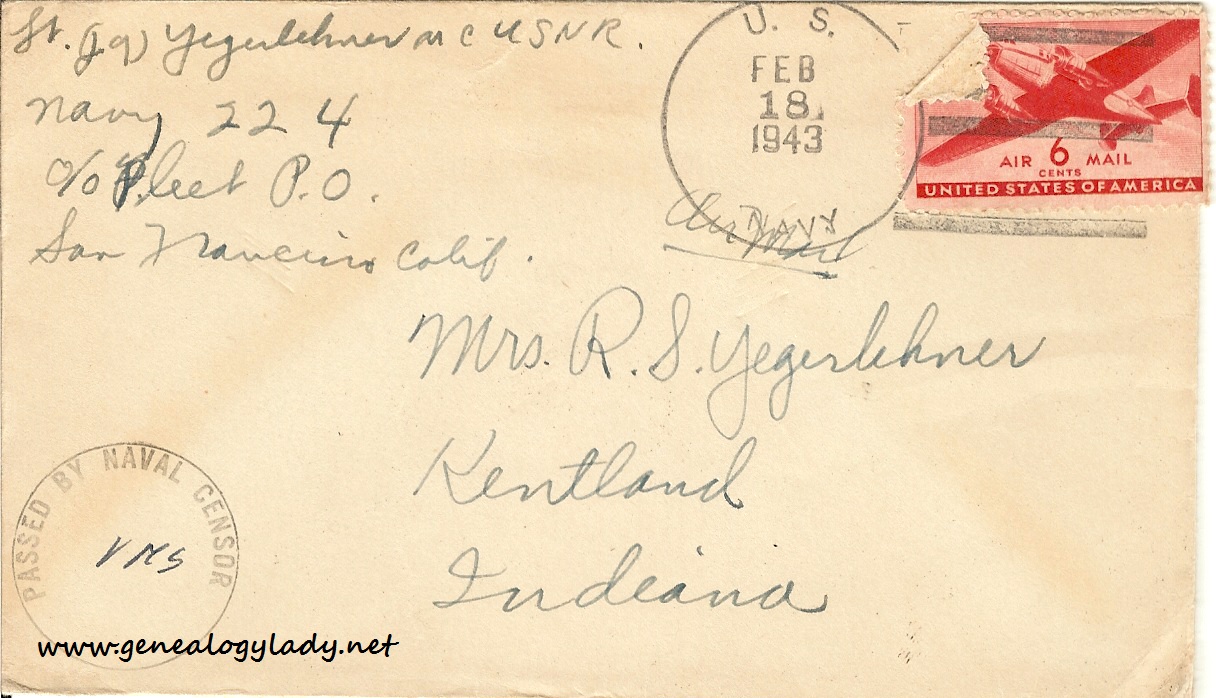 Lt. (jg) Yegerlehner MC USNR.
Navy 224
c/o Fleet P.O.
San Francisco Calif.
U. S.
FEB
18
1943
NAVY
Air Mail
AIR 6 MAIL
CENTS
UNITED STATES OF AMERICA
Mrs. R. S. Yegerlehner
Kentland
Indiana
PASSED BY NAVAL CENSOR
www.genealogylady.net